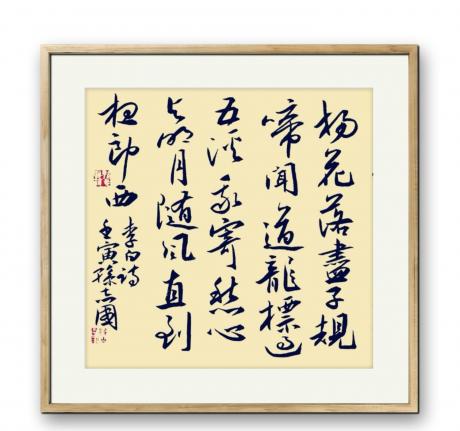 杨花落盡子規
啼聞道龍標過
五溪我寄愁心
与明月随风直到
夜郎西
李白诗
壬寅孫志國